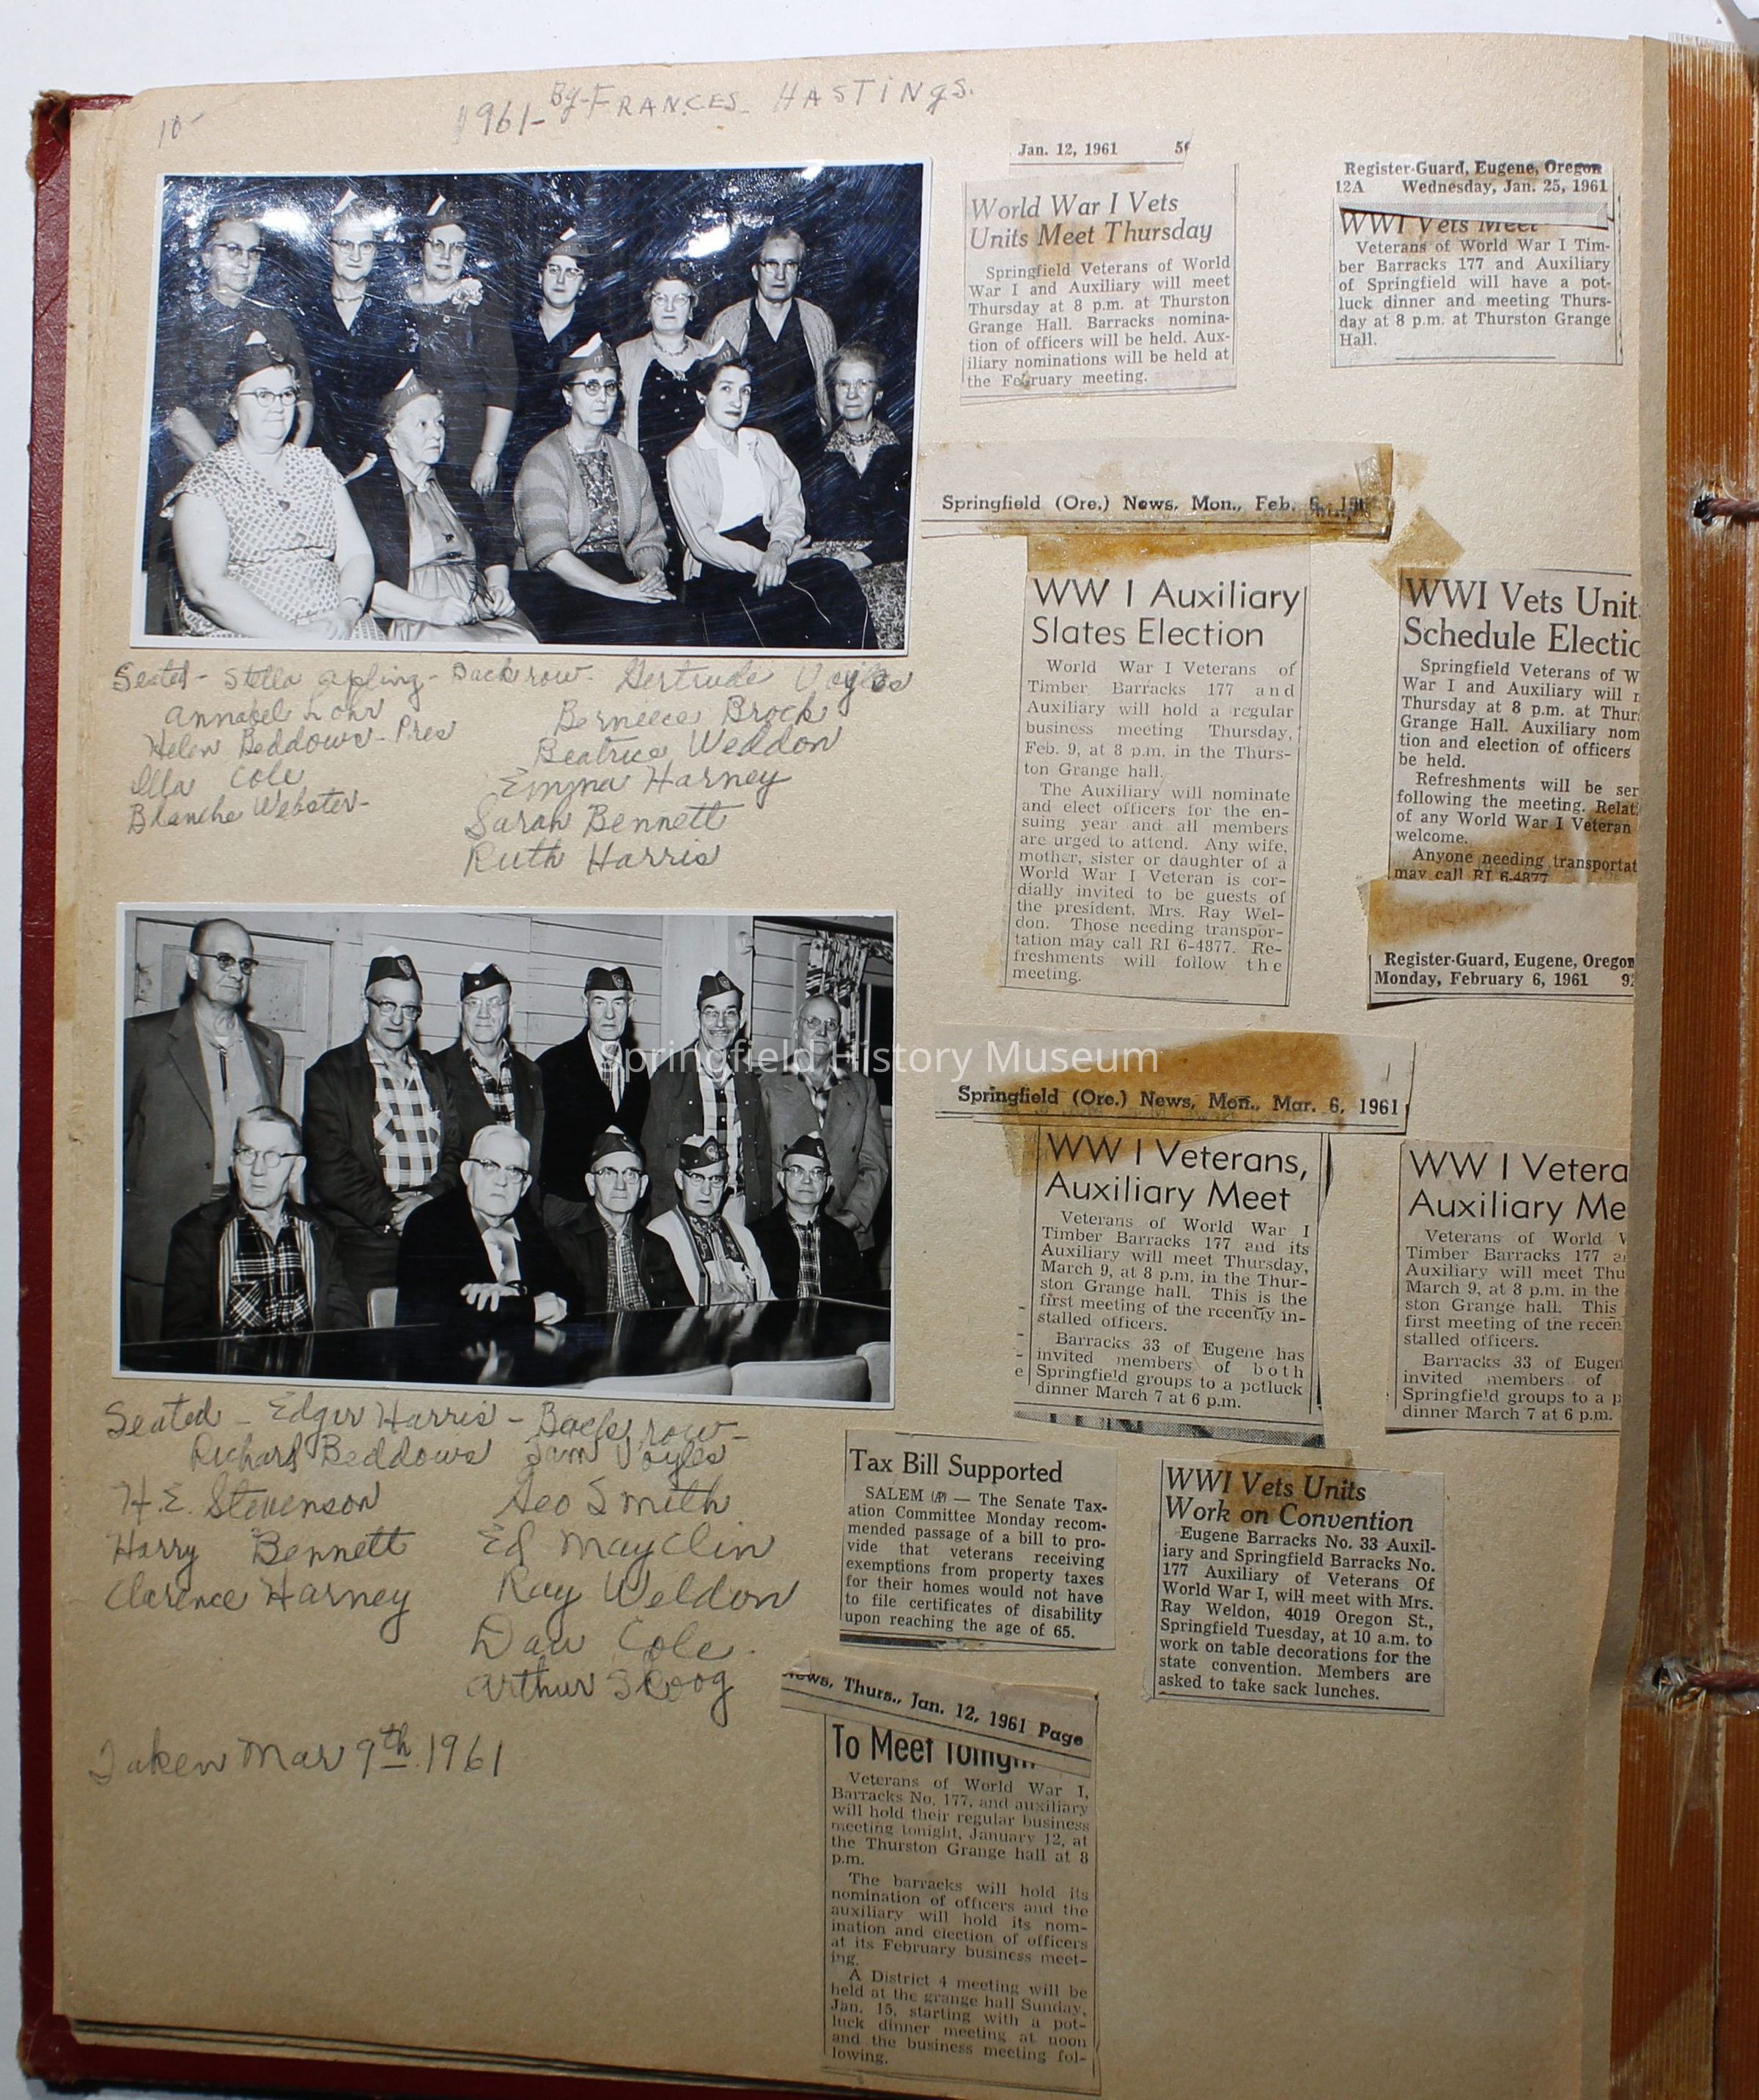 10-
1961- By-FRANCES HASTINGS.
Seated - Stella Apling - Back row - Gertrude Voyles
Annabel Lohr
Helen Beddows - Pres
Ella Cole
Blanche Webster -
Berneece Brock
Beatrice Weddon
Emma Harney
Sarah Bennett
Ruth Harris
Seated - Edger Harris - Back row -
Richard Beddows Sam Voyles
H.E. Stevenson
Harry Bennett
Clarence Harney
Geo Smith
Ed Mayclin
Ray Weldon
Daw Cole
Arthur Skoog
Taken Mar 9th 1961
Jan. 12, 1961
World War I Vets
Units Meet Thursday
Springfield Veterans of World
War I and Auxiliary will meet
Thursday at 8 p.m. at Thurston
Grange Hall. Barracks nomina-
tion of officers will be held. Aux-
iliary nominations will be held at
the February meeting.
Register-Guard, Eugene, Oregon
12A Wednesday, Jan. 25, 1961
WWI Vets Meet
Veterans of World War I Tim-
ber Barracks 177 and Auxiliary
of Springfield will have a pot-
luck dinner and meeting Thurs-
day at 8 p.m. at Thurston Grange
Hall.
Springfield (Ore.) News, Mon., Feb. 6,
WW I Auxiliary
Slates Election
World War I Veterans of
Timber Barracks 177 and
Auxiliary will hold a regular
business meeting Thursday,
Feb. 9, at 8 p.m. in the Thurs-
ton Grange hall.
The Auxiliary will nominate
and elect officers for the en-
suing year and all members
are urged to attend. Any wife,
mother, sister or daughter of a
World War I Veteran is cor-
dially invited to be guests of
the president, Mrs. Ray Wel-
don. Those needing transpor-
tation may call RI 6-4877. Re-
freshments will follow the
meeting.
WWI Vets Unit
Schedule Electio
Springfield Veterans of W
War I and Auxiliary will
Thursday at 8 p.m. at Thur
Grange Hall. Auxiliary nom
tion and election of officers
be held.
Refreshments will be ser
following the meeting. Relat
of any World War I Veteran
welcome.
Anyone needing transportat
may call RI 6-4877
Register-Guard, Eugene, Oregon
Monday, February 6, 1961
Springfield (Ore.) News, Mon., Mar. 6, 1961
WW I Veterans,
Auxiliary Meet
Veterans of World War I
Timber Barracks 177 and its
Auxiliary will meet Thursday,
March 9, at 8 p.m. in the Thur-
ston Grange hall. This is the
first meeting of the recently in-
stalled officers.
Barracks 33 of Eugene has
invited members of both
Springfield groups to a potluck
dinner March 7 at 6 p.m.
WW I Vetera
Auxiliary Me
Veterans of World
Timber Barracks 177 a
Auxiliary will meet Thu
March 9, at 8 p.m. in the
ston Grange hall. This
first meeting of the recen
stalled officers.
Barracks 33 of Eugen
invited members of
Springfield groups to a p
dinner March 7 at 6 p.m.
Tax Bill Supported
SALEM (AP) — The Senate Tax-
ation Committee Monday recom-
mended passage of a bill to pro-
vide that veterans receiving
exemptions from property taxes
for their homes would not have
to file certificates of disability
upon reaching the age of 65.
WWI Vets Units
Work on Convention
Eugene Barracks No. 33 Auxil-
iary and Springfield Barracks No.
177 Auxiliary of Veterans Of
World War I, will meet with Mrs.
Ray Weldon, 4019 Oregon St.,
Springfield Tuesday, at 10 a.m. to
work on table decorations for the
state convention. Members are
asked to take sack lunches.
News, Thurs., Jan. 12, 1961 Page
To Meet Tonight
Veterans of World War I,
Barracks No. 177, and auxiliary
will hold their regular business
meeting tonight, January 12, at
the Thurston Grange hall at 8
p.m.
The barracks will hold its
nomination of officers and the
auxiliary will hold its nom-
ination and election of officers
at its February business meet-
ing.
A District 4 meeting will be
held at the grange hall Sunday,
Jan. 15, starting with a pot-
luck dinner meeting at noon
and the business meeting fol-
lowing.
Springfield History Museum